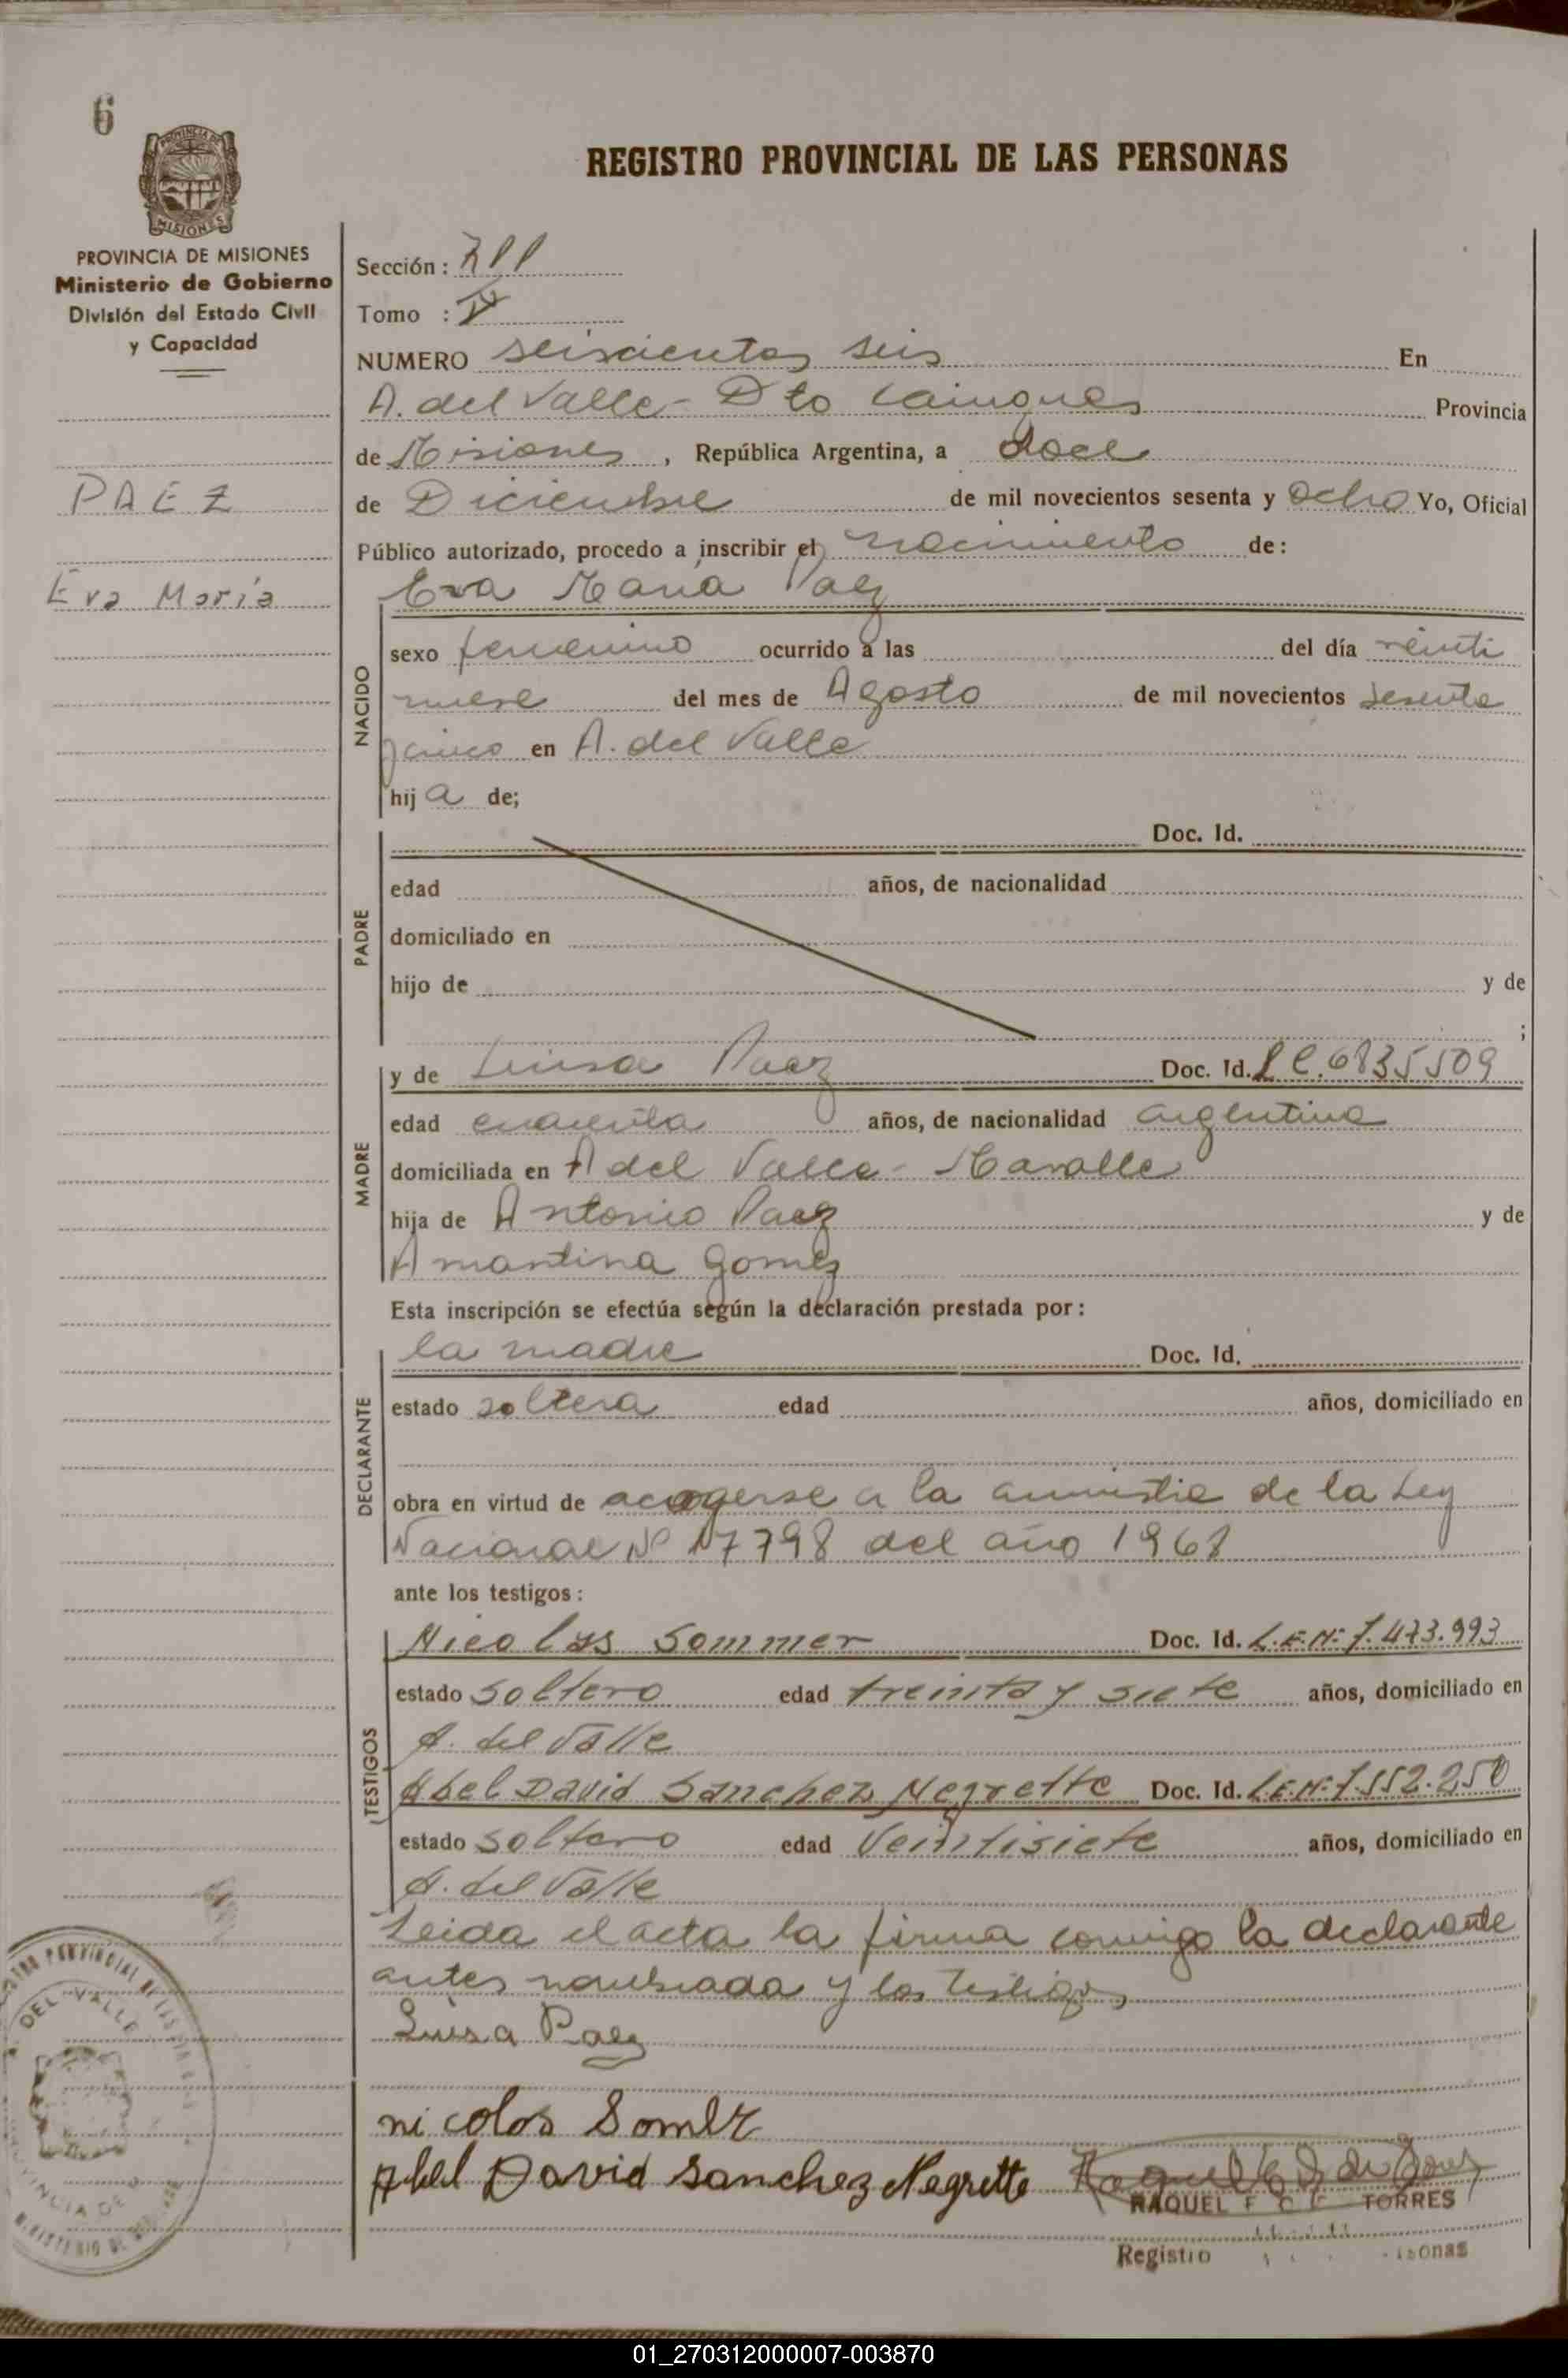 6
REGISTRO PROVINCIAL DE LAS PERSONAS
PROVINCIA DE MISIONES
Ministerio de Gobierno
División del Estado Civil
y Capacidad
PAEZ
Eva María
Sección:
Tomo : IV
NUMERO seiscientos seis En
A. del Valle - Dto Cainguas Provincia
de Misiones, República Argentina, a doce
de Diciembre de mil novecientos sesenta y ocho Yo, Oficial
Público autorizado, procedo a inscribir el nacimiento de:
Eva Maria Paez
NACIDO
sexo femenino ocurrido a las del día veinti
nueve del mes de Agosto de mil novecientos sesenta
y cinco en A. del Valle
hija de;
PADRE
Doc. Id.
edad años, de nacionalidad
domiciliado en
hijo de y de
;
MADRE
y de Luisa Paez Doc. Id. L C. 6835509
edad cuarenta años, de nacionalidad argentina
domiciliada en A del Valle -
hija de Antonio Paez y de
Amantina Gomez
Esta inscripción se efectúa según la declaración prestada por:
DECLARANTE
la madre Doc. Id.
estado soltera edad años, domiciliado en
obra en virtud de acogerse a la amnistia de la Ley
Nacional Nº 17798 del año 1968
ante los testigos:
TESTIGOS
Nicolas Sommer Doc. Id. L.E.Nº 7.473.993
estado soltero edad treinta y siete años, domiciliado en
A. del Valle
Abel David Sanchez Negrette Doc. Id. L.E.Nº 7.552.250
estado soltero edad Veintisiete años, domiciliado en
A. del Valle
Leida el acta la firma conmigo la declarante
antes nombrada y los testigos
Luisa Paez
nicolas Somer
Abel David Sanchez Negrette
RAQUEL F TORRES
Registro
DEL VALLE
01_270312000007-003870